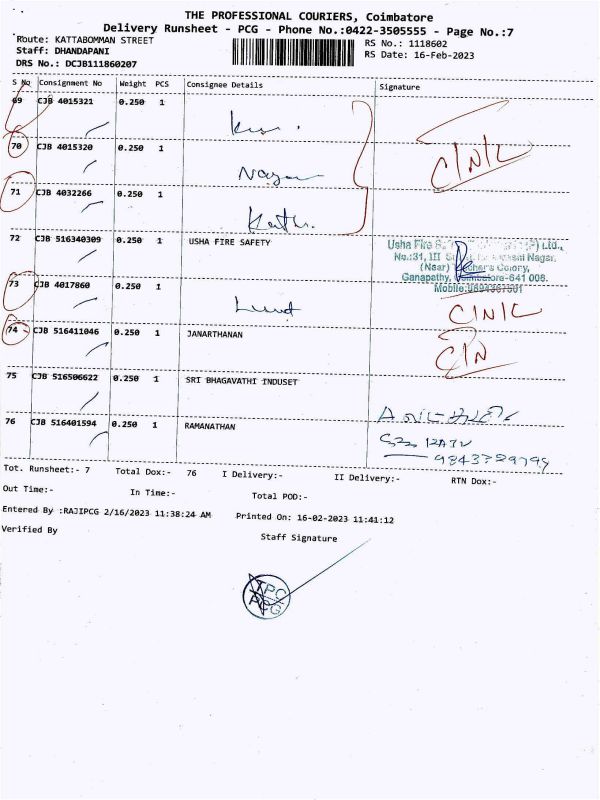 THE PROFESSIONAL COURIERS, Coimbatore
Delivery Runsheet - PCG - Phone No.:0422-3505555 - Page No.:7
Route: KATTABOMMAN STREET
RS No.: 1118602
Staff: DHANDAPANI
RS Date: 16-Feb-2023
DRS No.: DCJB111860207
S No Consignment No Weight PCS Consignee Details Signature
69 CJB 4015321 0.250 1
70 CJB 4015320 0.250 1
C/N/C
71 CJB 4032266 0.250 1
72 CJB 516340309 0.250 1 USHA FIRE SAFETY
Usha Fire (P) Ltd.,
No.:31, III Nagar,
(Near) Colony,
Ganapathy, Coimbatore-641 006.
73 CJB 4017860 0.250 1
C/N/C
74 CJB 516411046 0.250 1 JANARTHANAN
C/N
75 CJB 516506622 0.250 1 SRI BHAGAVATHI INDUSET
76 CJB 516401594 0.250 1 RAMANATHAN
Tot. Runsheet:- 7 Total Dox:- 76 I Delivery:- II Delivery:- RTN Dox:-
Out Time:- In Time:- Total POD:-
Entered By :RAJIPCG 2/16/2023 11:38:24 AM Printed On: 16-02-2023 11:41:12
Verified By Staff Signature
TPC
PCG